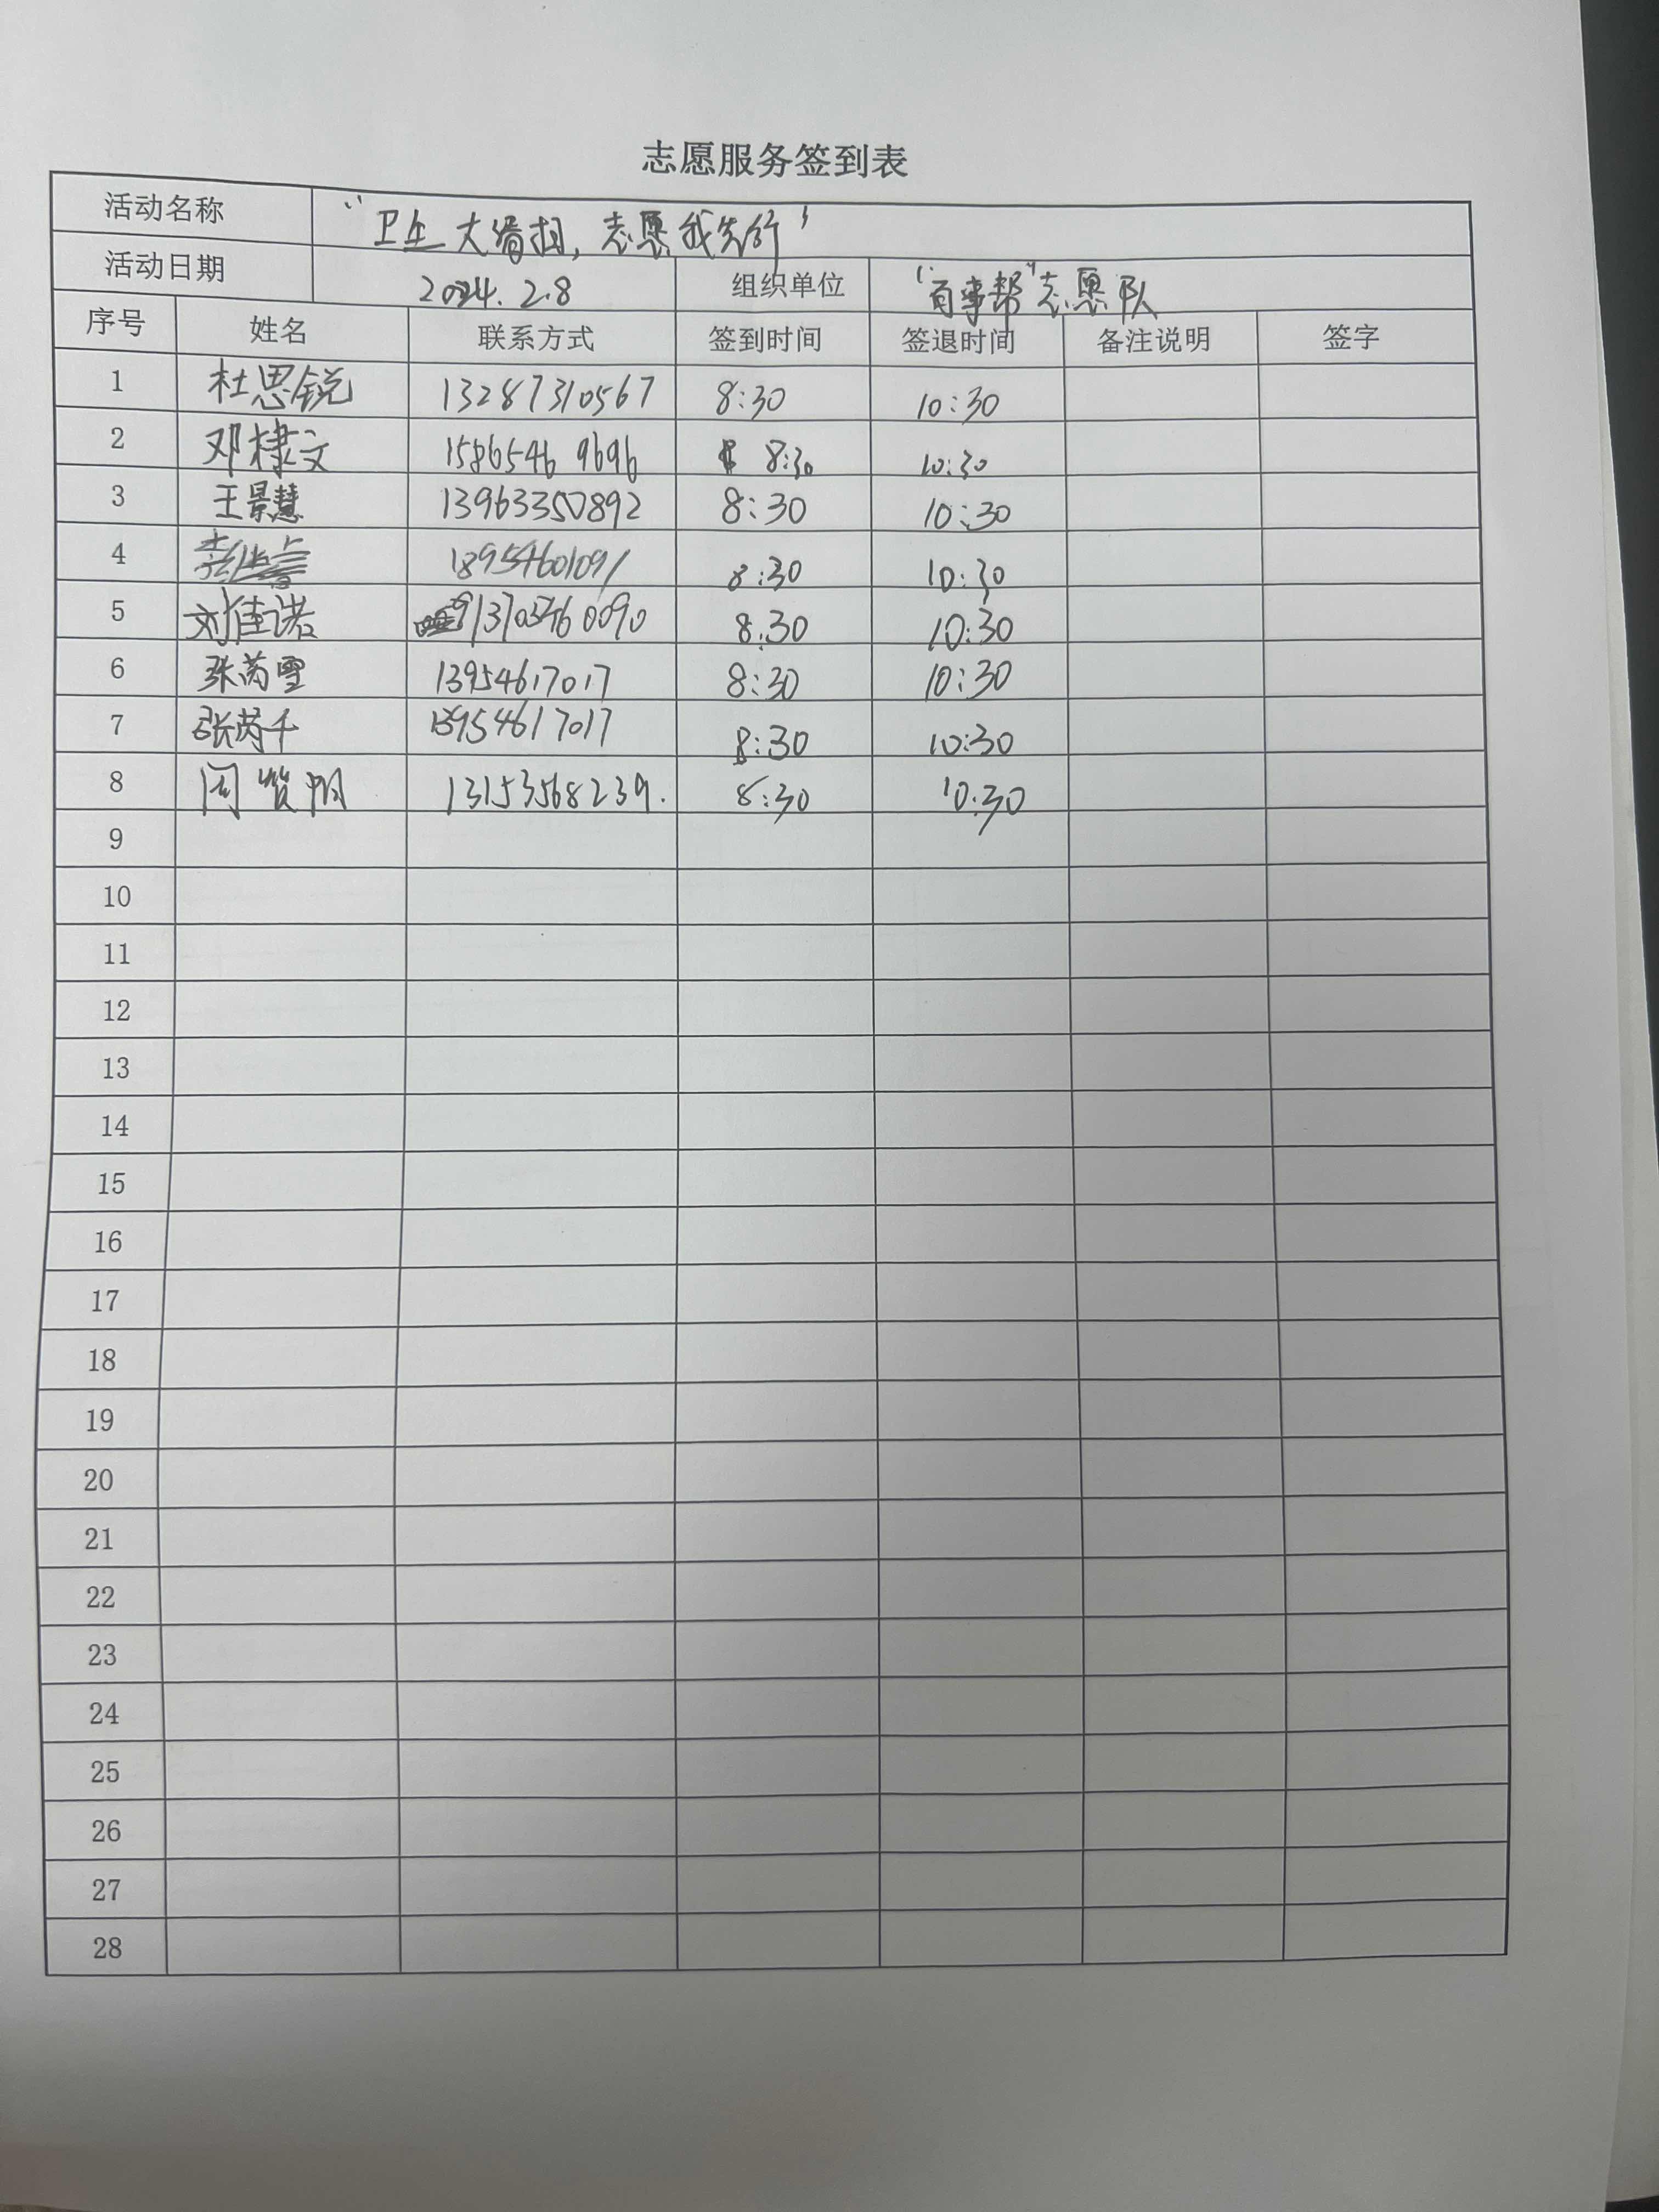 志愿服务签到表
活动名称 “卫生大清扫，志愿我先行”
活动日期 2024.2.8 组织单位 “百事帮”志愿队
序号 姓名 联系方式 签到时间 签退时间 备注说明 签字
1 杜思锐 13287310567 8:30 10:30
2 邓棣文 15865469696 8:30 10:30
3 王景慧 13963350892 8:30 10:30
4 18954601091 8:30 10:30
5 刘佳诺 13703460090 8:30 10:30
6 张芮雪 13954617017 8:30 10:30
7 张芮千 13954617017 8:30 10:30
8 周贤帆 13153568239. 8:30 10:30
9
10
11
12
13
14
15
16
17
18
19
20
21
22
23
24
25
26
27
28